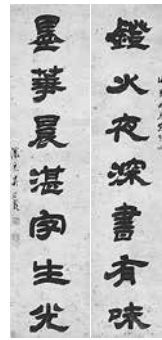 鐙火夜深書有味
墨華晨湛字生光